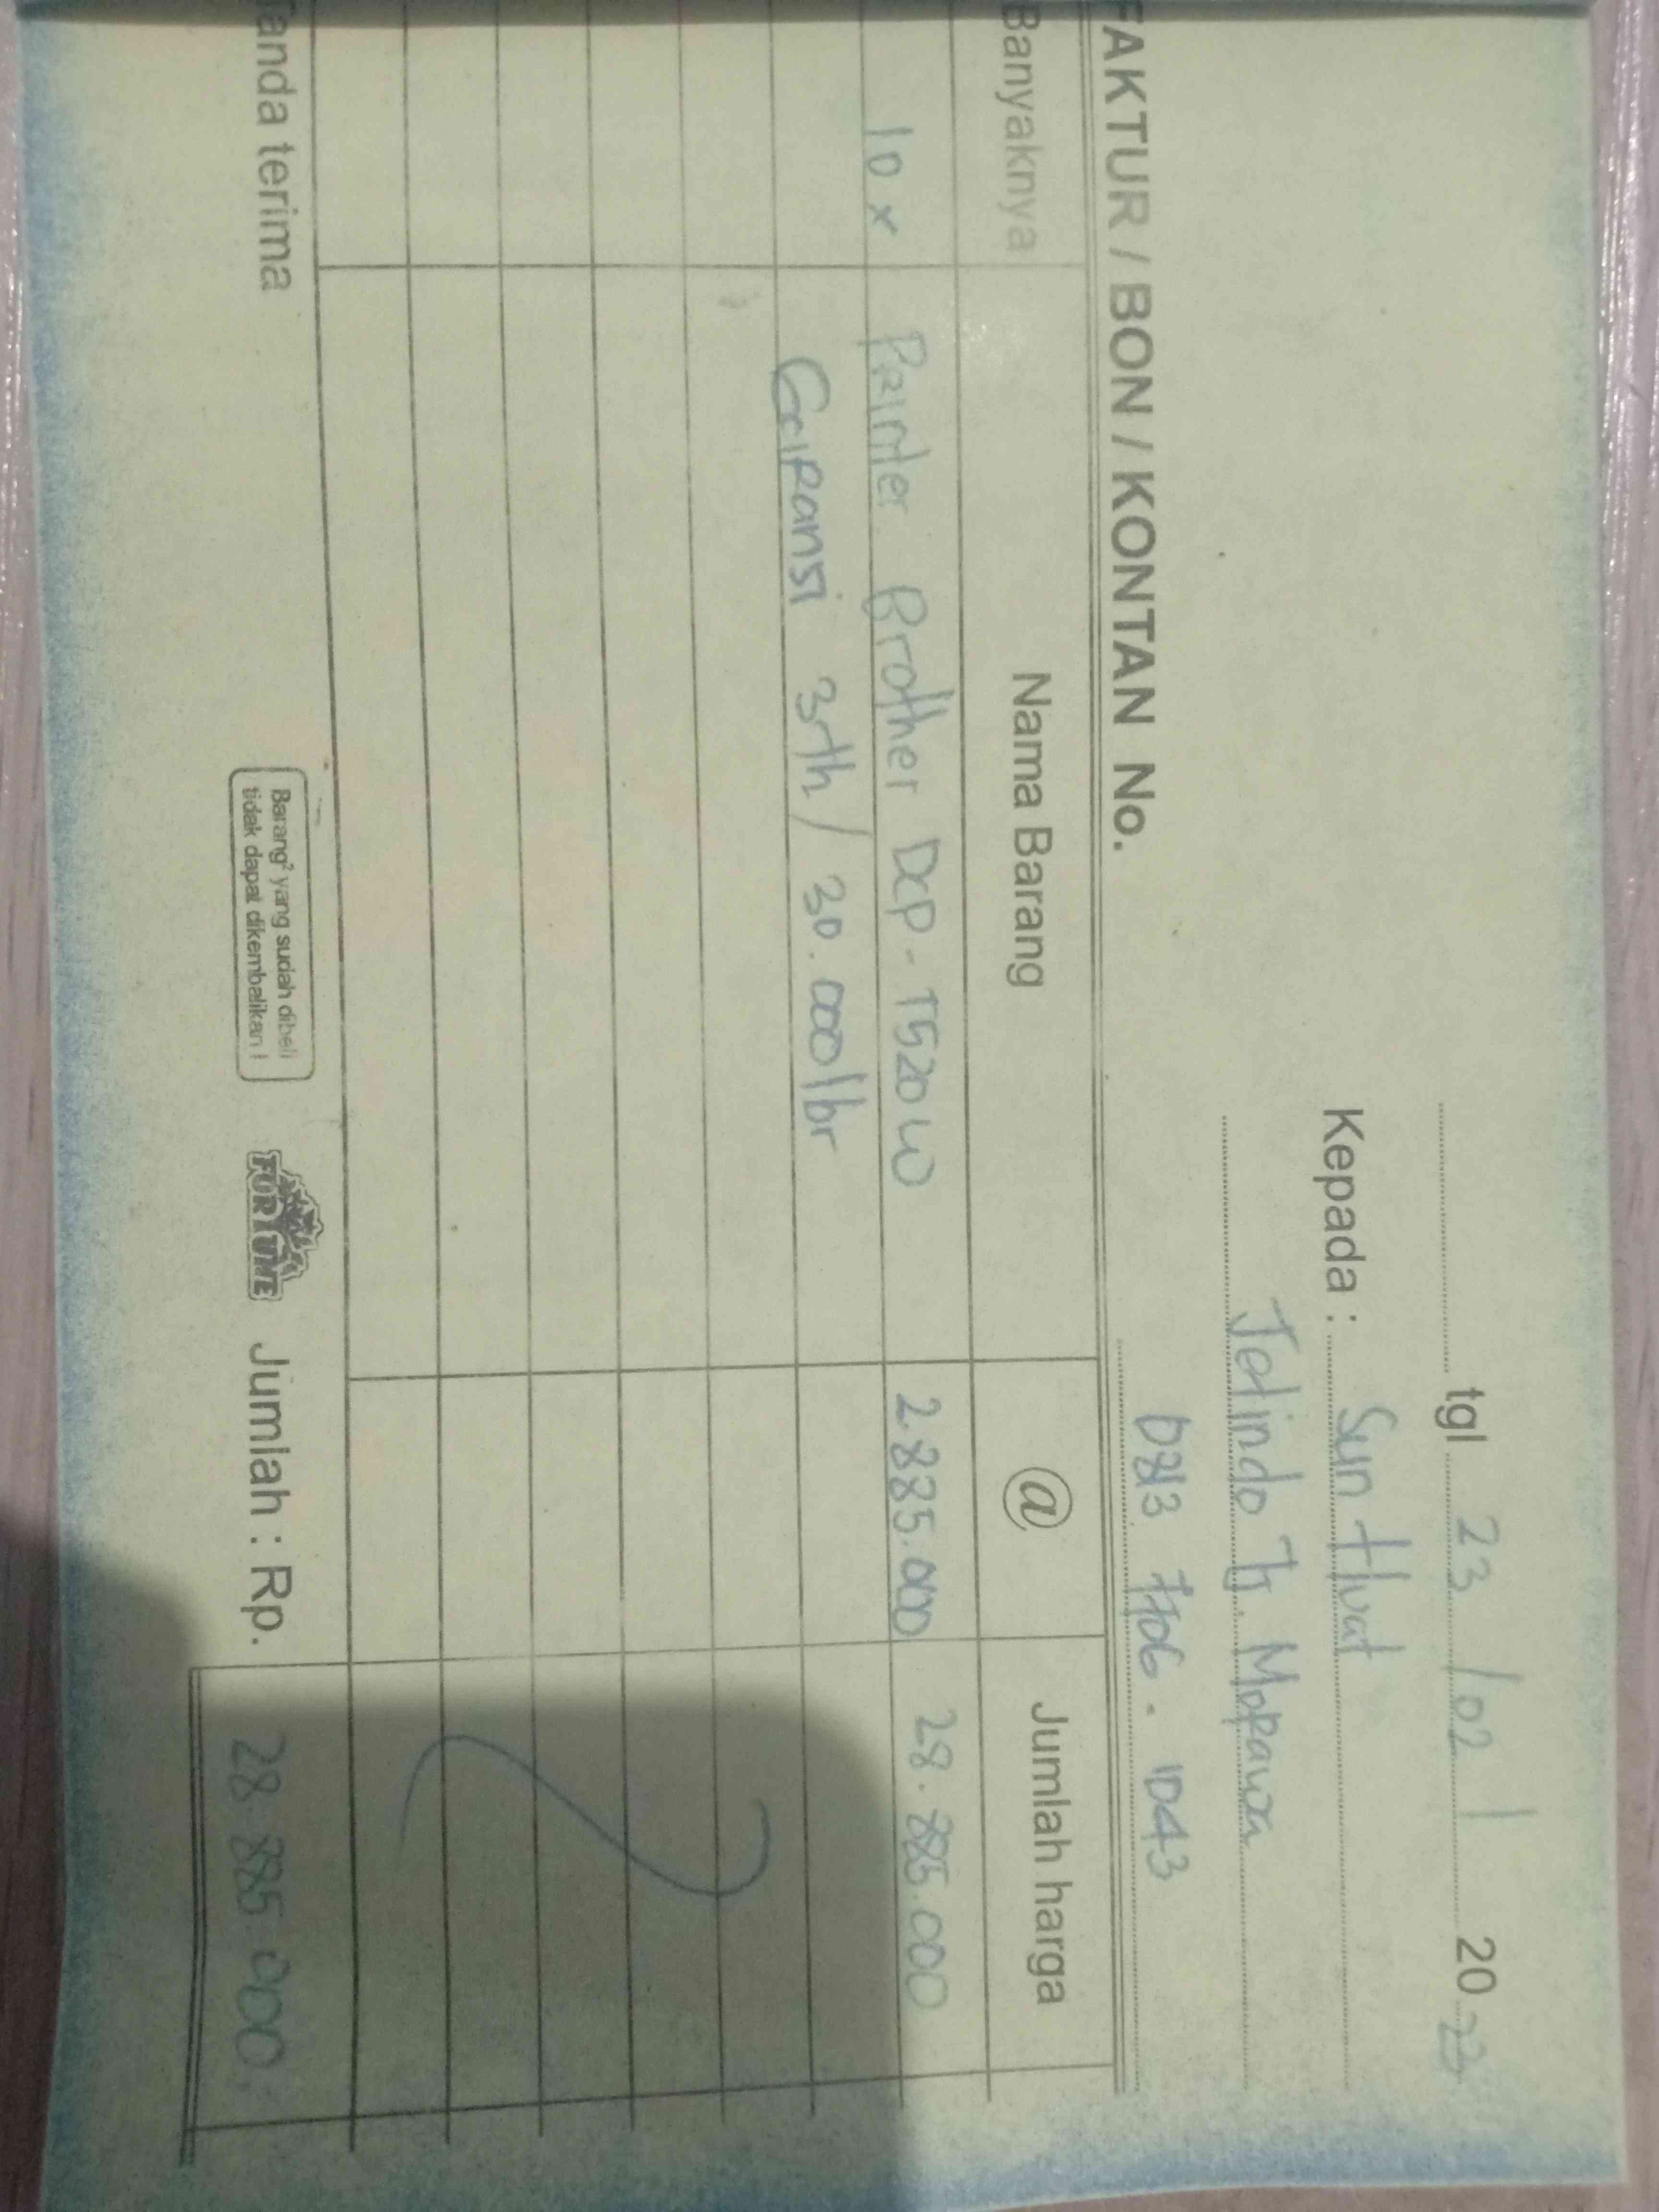 tgl 23 / 02 / 20 23
Kepada : Sun Huat
Jerlindo Tj. Morawa
0813 7706 - 1043
FAKTUR / BON / KONTAN No.
Banyaknya Nama Barang @ Jumlah harga
10 x Printer Brother DCP - T520W 2.885.000 28.885.000
Garansi 3th / 30.000 lbr
anda terima
Barang² yang sudah dibeli
tidak dapat dikembalikan !
FORTUNE
Jumlah : Rp. 28.885.000